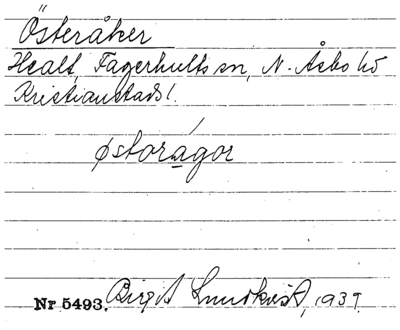 Österåker
Healt, Fagerhults sn, N. Åsbo hd
Kristianstads l.
østorågor
Nr 5493. Birgit Lundkvist, 1937